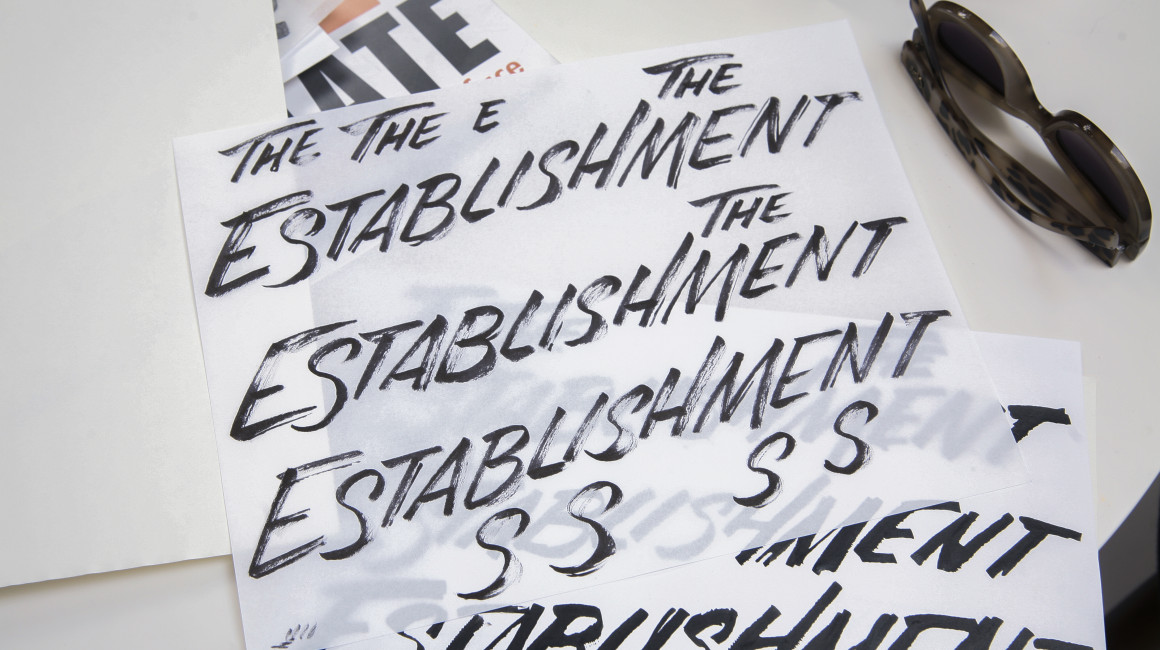 ATE
THE THE E THE
ESTABLISHMENT
THE
ESTABLISHMENT
ESTABLISHMENT
S S
S S
MENT
STABLISHMENT